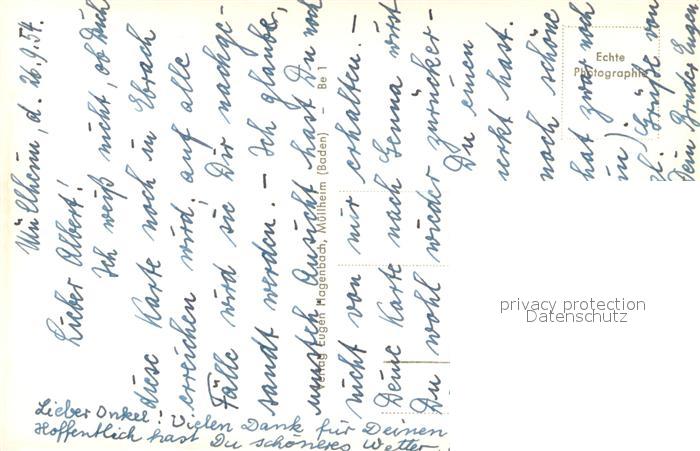 Müllheim, d. 26.9.54.
Lieber Albert!
Ich weiß nicht, ob Dich
diese Karte noch in Ebrach
erreichen wird; auf alle
Fälle wird sie Dir nachge-
sandt werden. – Ich glaube,
Ansicht hast Du noch
nicht von mir erhalten. –
Deine Karte nach Genua wirst
Du wohl wieder zurücker-
Du einen
merkt hast.
noch schöne
hat zwar noch
in) Grüße von
Dein Bruder Eugen
Lieber Onkel! Vielen Dank für Deinen
Hoffentlich hast Du schöneres Wetter.
Verlag Eugen Hagenbach, Müllheim (Baden) – Be 1
Echte
Photographie
privacy protection
Datenschutz